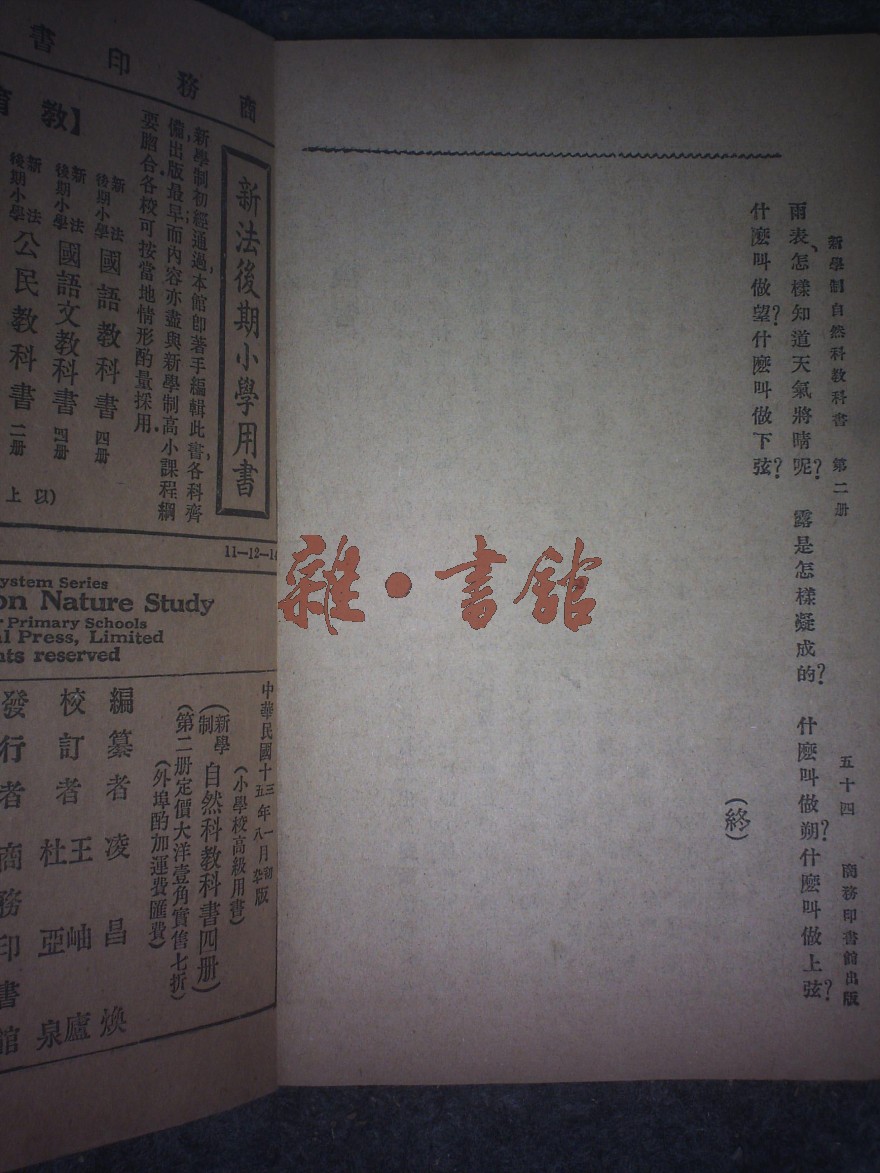 新學制自然科教科書 第二册 五十四 商務印書館出版
雨表、怎樣知道天氣將晴呢? 露是怎樣凝成的? 什麽叫做朔?什麽叫做上弦?
什麽叫做望?什麽叫做下弦?
(終)
雜·書館
商務印書
【教育
新法後期小學用書
新學制初經通過,本館卽著手編輯此書,各科齊
備,出版最早;而內容亦盡與新學制高小課程綱
要脗合.各校可按當地情形酌量採用.
新法後期小學 國語教科書 四册
新法後期小學 國語文教科書 四册
新法後期小學 公民教科書 二册
(以上
11—12—1
ystem Series
on Nature Study
Primary Schools
l Press, Limited
nts reserved
中華民國十三年一月初版
五年八月
(小學校高級用書)
(新學制 自然科教科書四册)
(第二册定價大洋壹角實售七折)
(外埠酌加運費匯費)
編纂者 凌昌煥
校訂者 王岫廬 杜亞泉
發行者 商務印書館